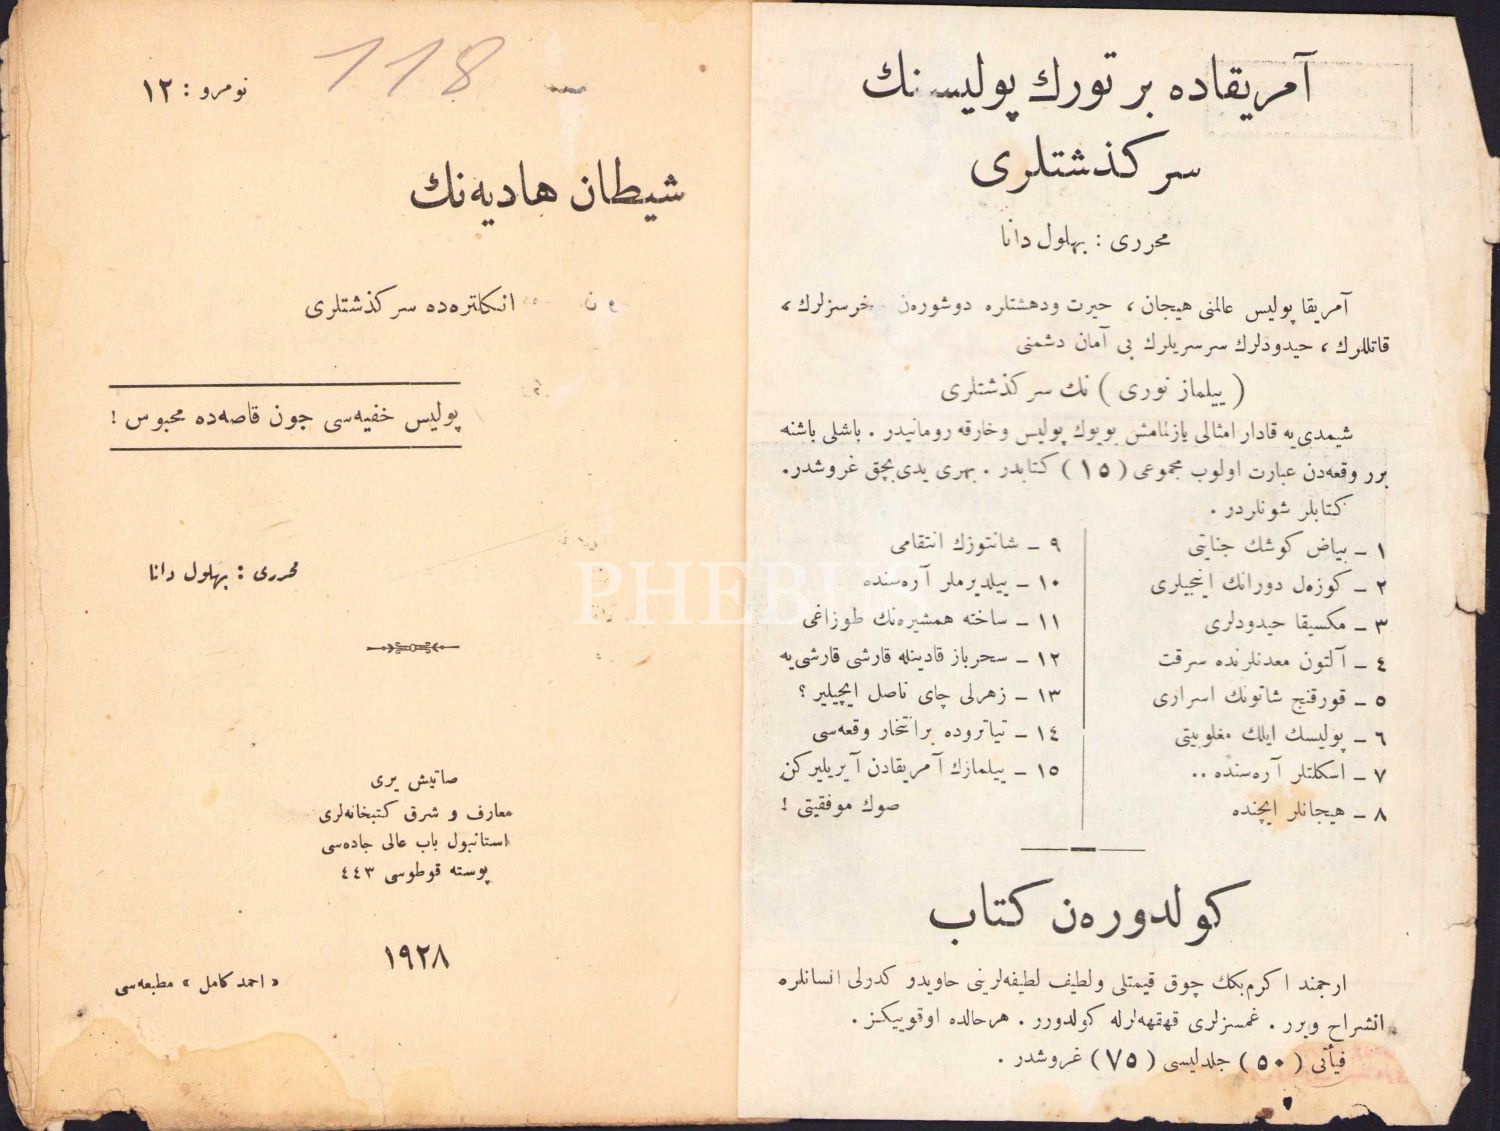 آمریقاده بر تورك پولیسنك
سرکذشتلری
محرری : بهلول دانا
آمریقا پولیس عالمنی هیجان ، حیرت ودهشتلره دوشورەن خرسزلرك ،
قاتللرك ، حیدودلرك سرسریلرك بی آمان دشمنی
( ییلماز نوری ) نك سرکذشتلری
شیمدی‌یه قادار امثالی یازلمامش بویوك پولیس وخارقه رومانیدر . باشلی باشنه
برر وقعه‌دن عبارت اولوب مجموعی ( ١٥ ) کتابدر . بهری یدی بچق غروشدر.
کتابلر شونلردر .
١ ـ بیاض کوشك جنایتی
٢ ـ کوزەل دورانك اینجیلری
٣ ـ مکسیقا حیدودلری
٤ ـ آلتون معدنلرنده سرقت
٥ ـ قورقنج شاتونك اسراری
٦ ـ پولیسك ایلك مغلوبیتی
٧ ـ اسکلتلر آره‌سنده ..
٨ ـ هیجانلر ایچنده
٩ ـ شانتوزك انتقامی
١٠ ـ ییلدیرملر آره‌سنده
١١ ـ ساخته همشیره‌نك طوزاغی
١٢ ـ سحرباز قادینله قارشی قارشی‌یه
١٣ ـ زهرلی چای ناصل ایچیلیر ؟
١٤ ـ تیاتروده بر انتحار وقعه‌سی
١٥ ـ ییلمازك آمریقادن آیریلیرکن
صوك موفقیتی !
کولدوره‌ن کتاب
ارجمند اکرم بکك چوق قیمتلی ولطیف لطیفه‌لرینی حاویدو کدرلی انسانلره
انشراح ویرر . غمسزلری قهقهه‌لرله کولدورر . هرحالده اوقوییکز .
فیأتی ( ٥٠ ) جلدلیسی ( ٧٥ ) غروشدر .
118
نومرو : ١٢
شیطان هادیه‌نك
انکلتره‌ده سرکذشتلری
پولیس خفیه‌سی جون قاصه‌ده محبوس !
محرری : بهلول دانا
صاتیش یری
معارف و شرق کتبخانه‌لری
استانبول باب عالی جاده‌سی
پوسته قوطوسی ٤٤٣
١٩٢٨
« احمد کامل » مطبعه‌سی
PHEBUS